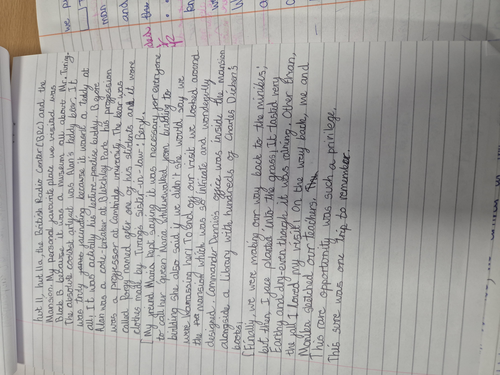 hut 11, hut 11a, the British Radio Center (BRC) and the
Mansion. My personal favourite place we visited was
Block B because it was a museum all about Mr. Turing.
The absolute cutest artifact was Alan's teddy bear. It
was truly game
all! It was actually his lecture-practice buddy. Before
Alan was a code-breaker at Bletchley Park his profession
was a proffessor at Cambridge University. The bear was
called Porgy, named after one of his students and it wore
clothes made by Turing's sister in-law-Beryl.
[My friend Munas kept saying it was necessary for everyone
to call her queen Muna whilst walked from building to
building she also said if we didn't she would say we
were harrassing her. To end off our visit we looked around
the mansion which was so intricate and wonderfully
designed. Commander Dennis's office was inside the mansion
alongside a library with hundreds of Charles Dicken's
books.
[Finally we were making our way back to the minibus;
but then I face planted into the grass. It tasted very
Earthy and dry-even though it was raining. Other than,
the fall I loved my visit. On the way back, me and
Monika sketched our teachers.
This rare opportunity was such a privilege.
This sure was one trip to remember.